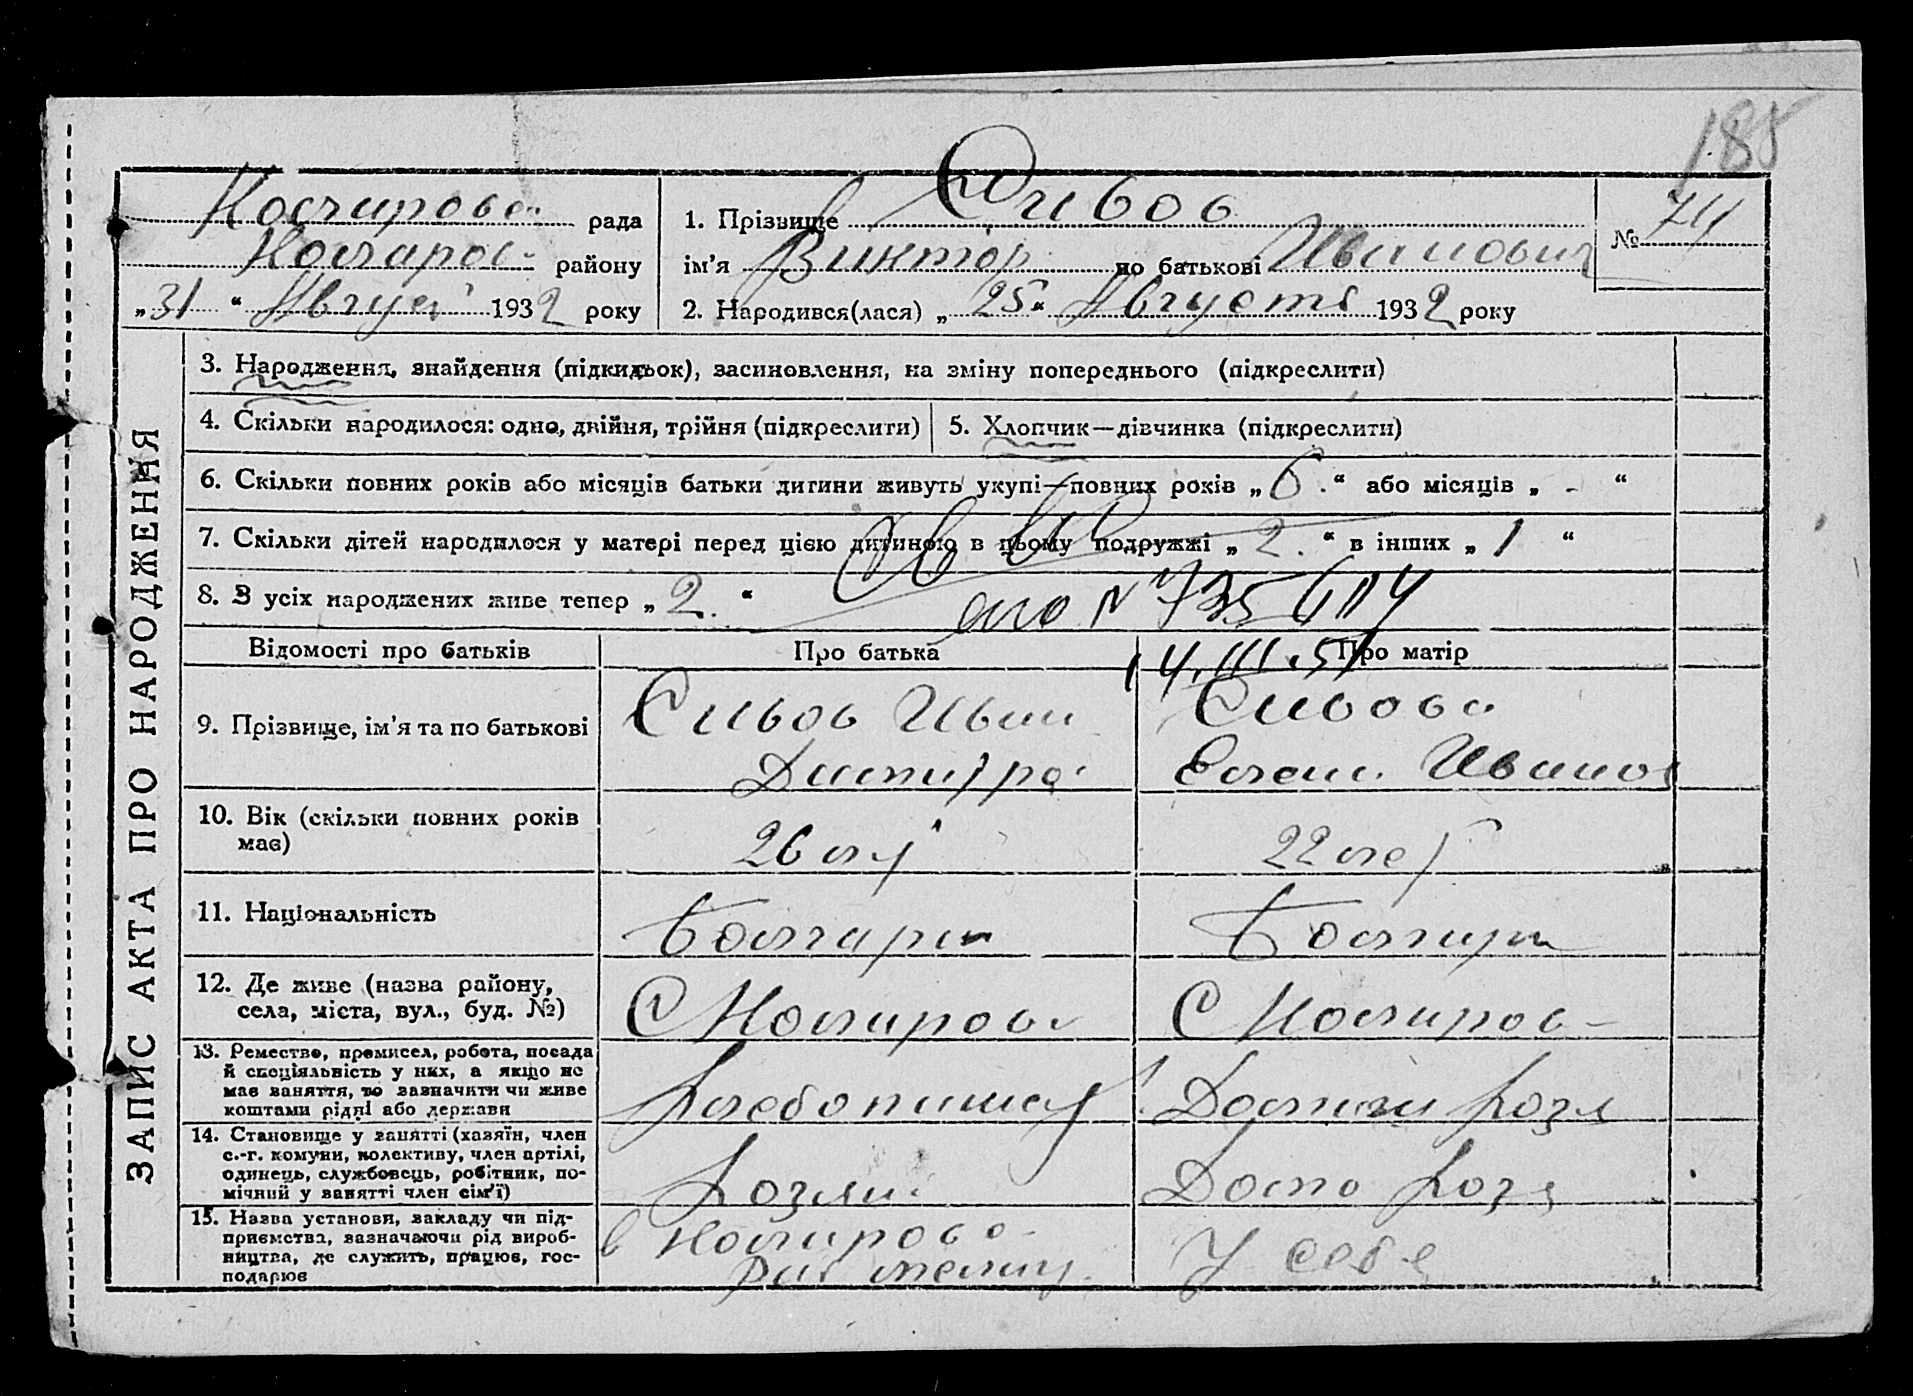 185
рада
1. Прізвище Сивов
№ 74
району
ім'я Виктор по батькові Иванович
„31“ Август 1932 року
2. Народився(лася) „25“ Августа 1932 року
ЗАПИС АКТА ПРО НАРОДЖЕННЯ
3. Народження, знайдення (підкидьок), засиновлення, на зміну попереднього (підкреслити)
4. Скільки народилося: одно, двійня, трійня (підкреслити)
5. Хлопчик—дівчинка (підкреслити)
6. Скільки повних років або місяців батьки дитини живуть укупі—повних років „6.“ або місяців „-“
7. Скільки дітей народилося у матері перед цією дитиною в цьому подружжі „2.“ в інших „1“
8. З усіх народжених живе тепер „2.“
№ 735604
14.III.51
Відомості про батьків
Про батька
Про матір
9. Прізвище, ім'я та по батькові
Сивов Иван
Дмитро
Сивова
Иванов
10. Вік (скільки повних років
має)
26
22
11. Національність
Болгарин
Болгарк
12. Де живе (назва району,
села, міста, вул., буд. №)
С
С
13. Ремество, промисел, робота, посада
й спеціяльність у них, а якщо не
має заняття, то зазначити чи живе
коштами рідні або держави
Хлебопашец
Домаш хозя
14. Становище у занятті (хазяїн, член
с.-г. комуни, колективу, член артілі,
одинець, службовець, робітник, по-
мічний у занятті член сім'ї)
Хозяин
Домо хозя
15. Назва установи, закладу чи під-
приємства, зазначаючи рід вироб-
ництва, де служить, працює, гос-
подарює
в
У себе